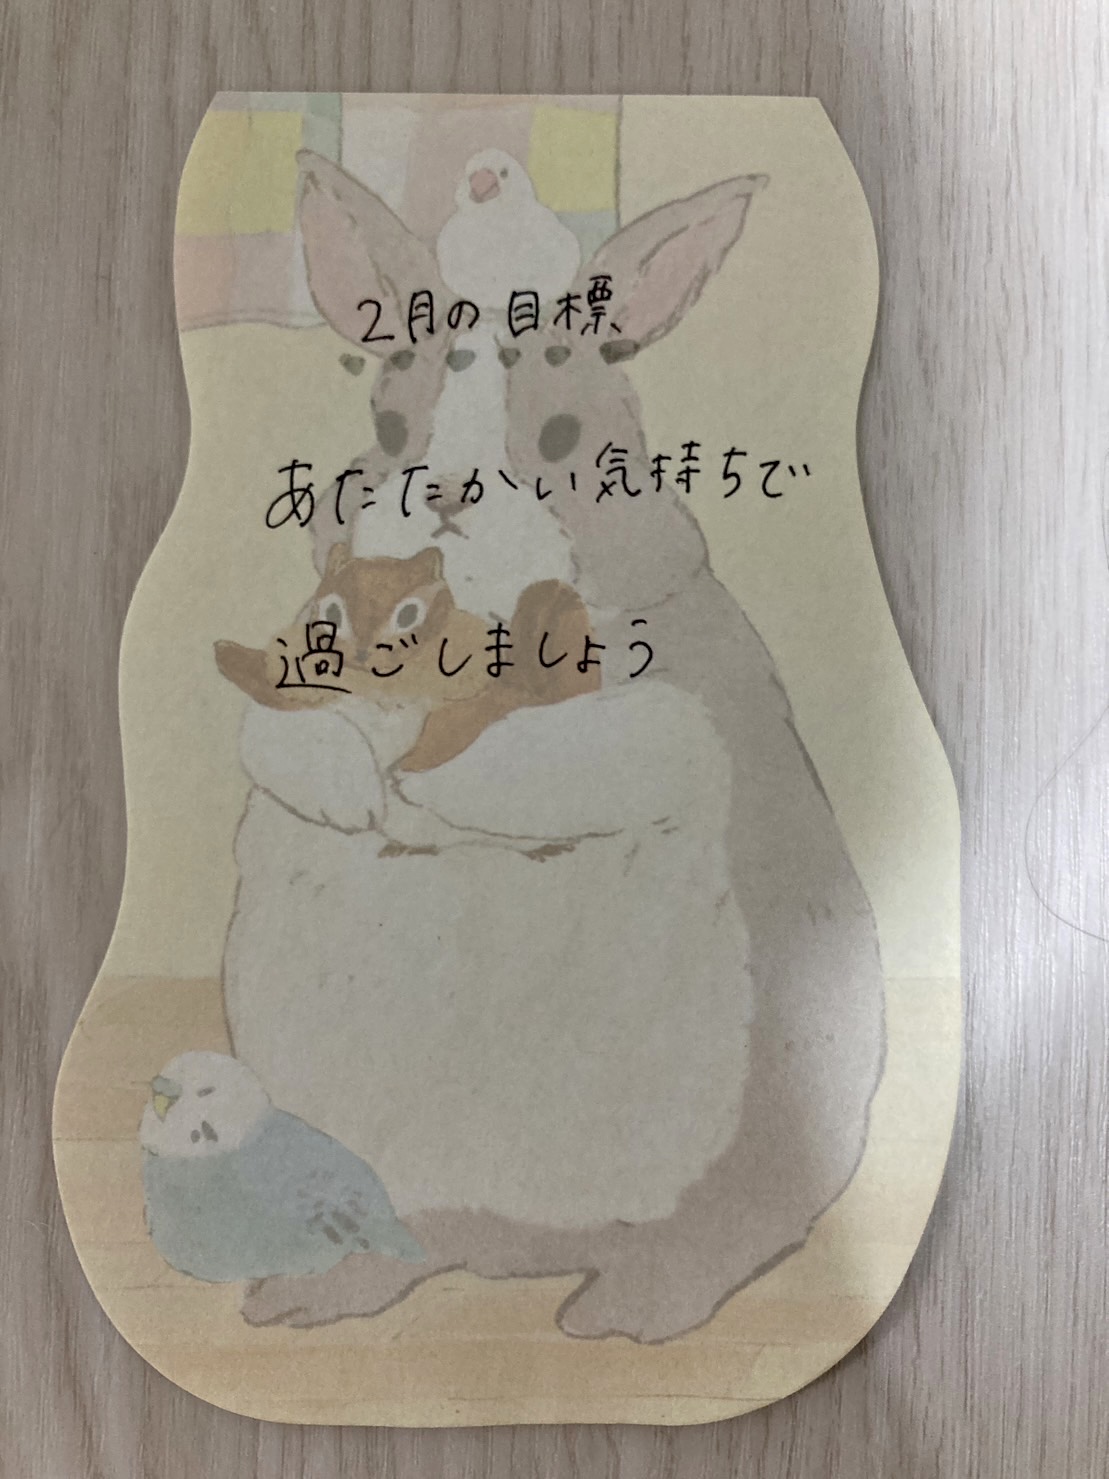 2月の目標
あたたかい気持ちで
過ごしましょう